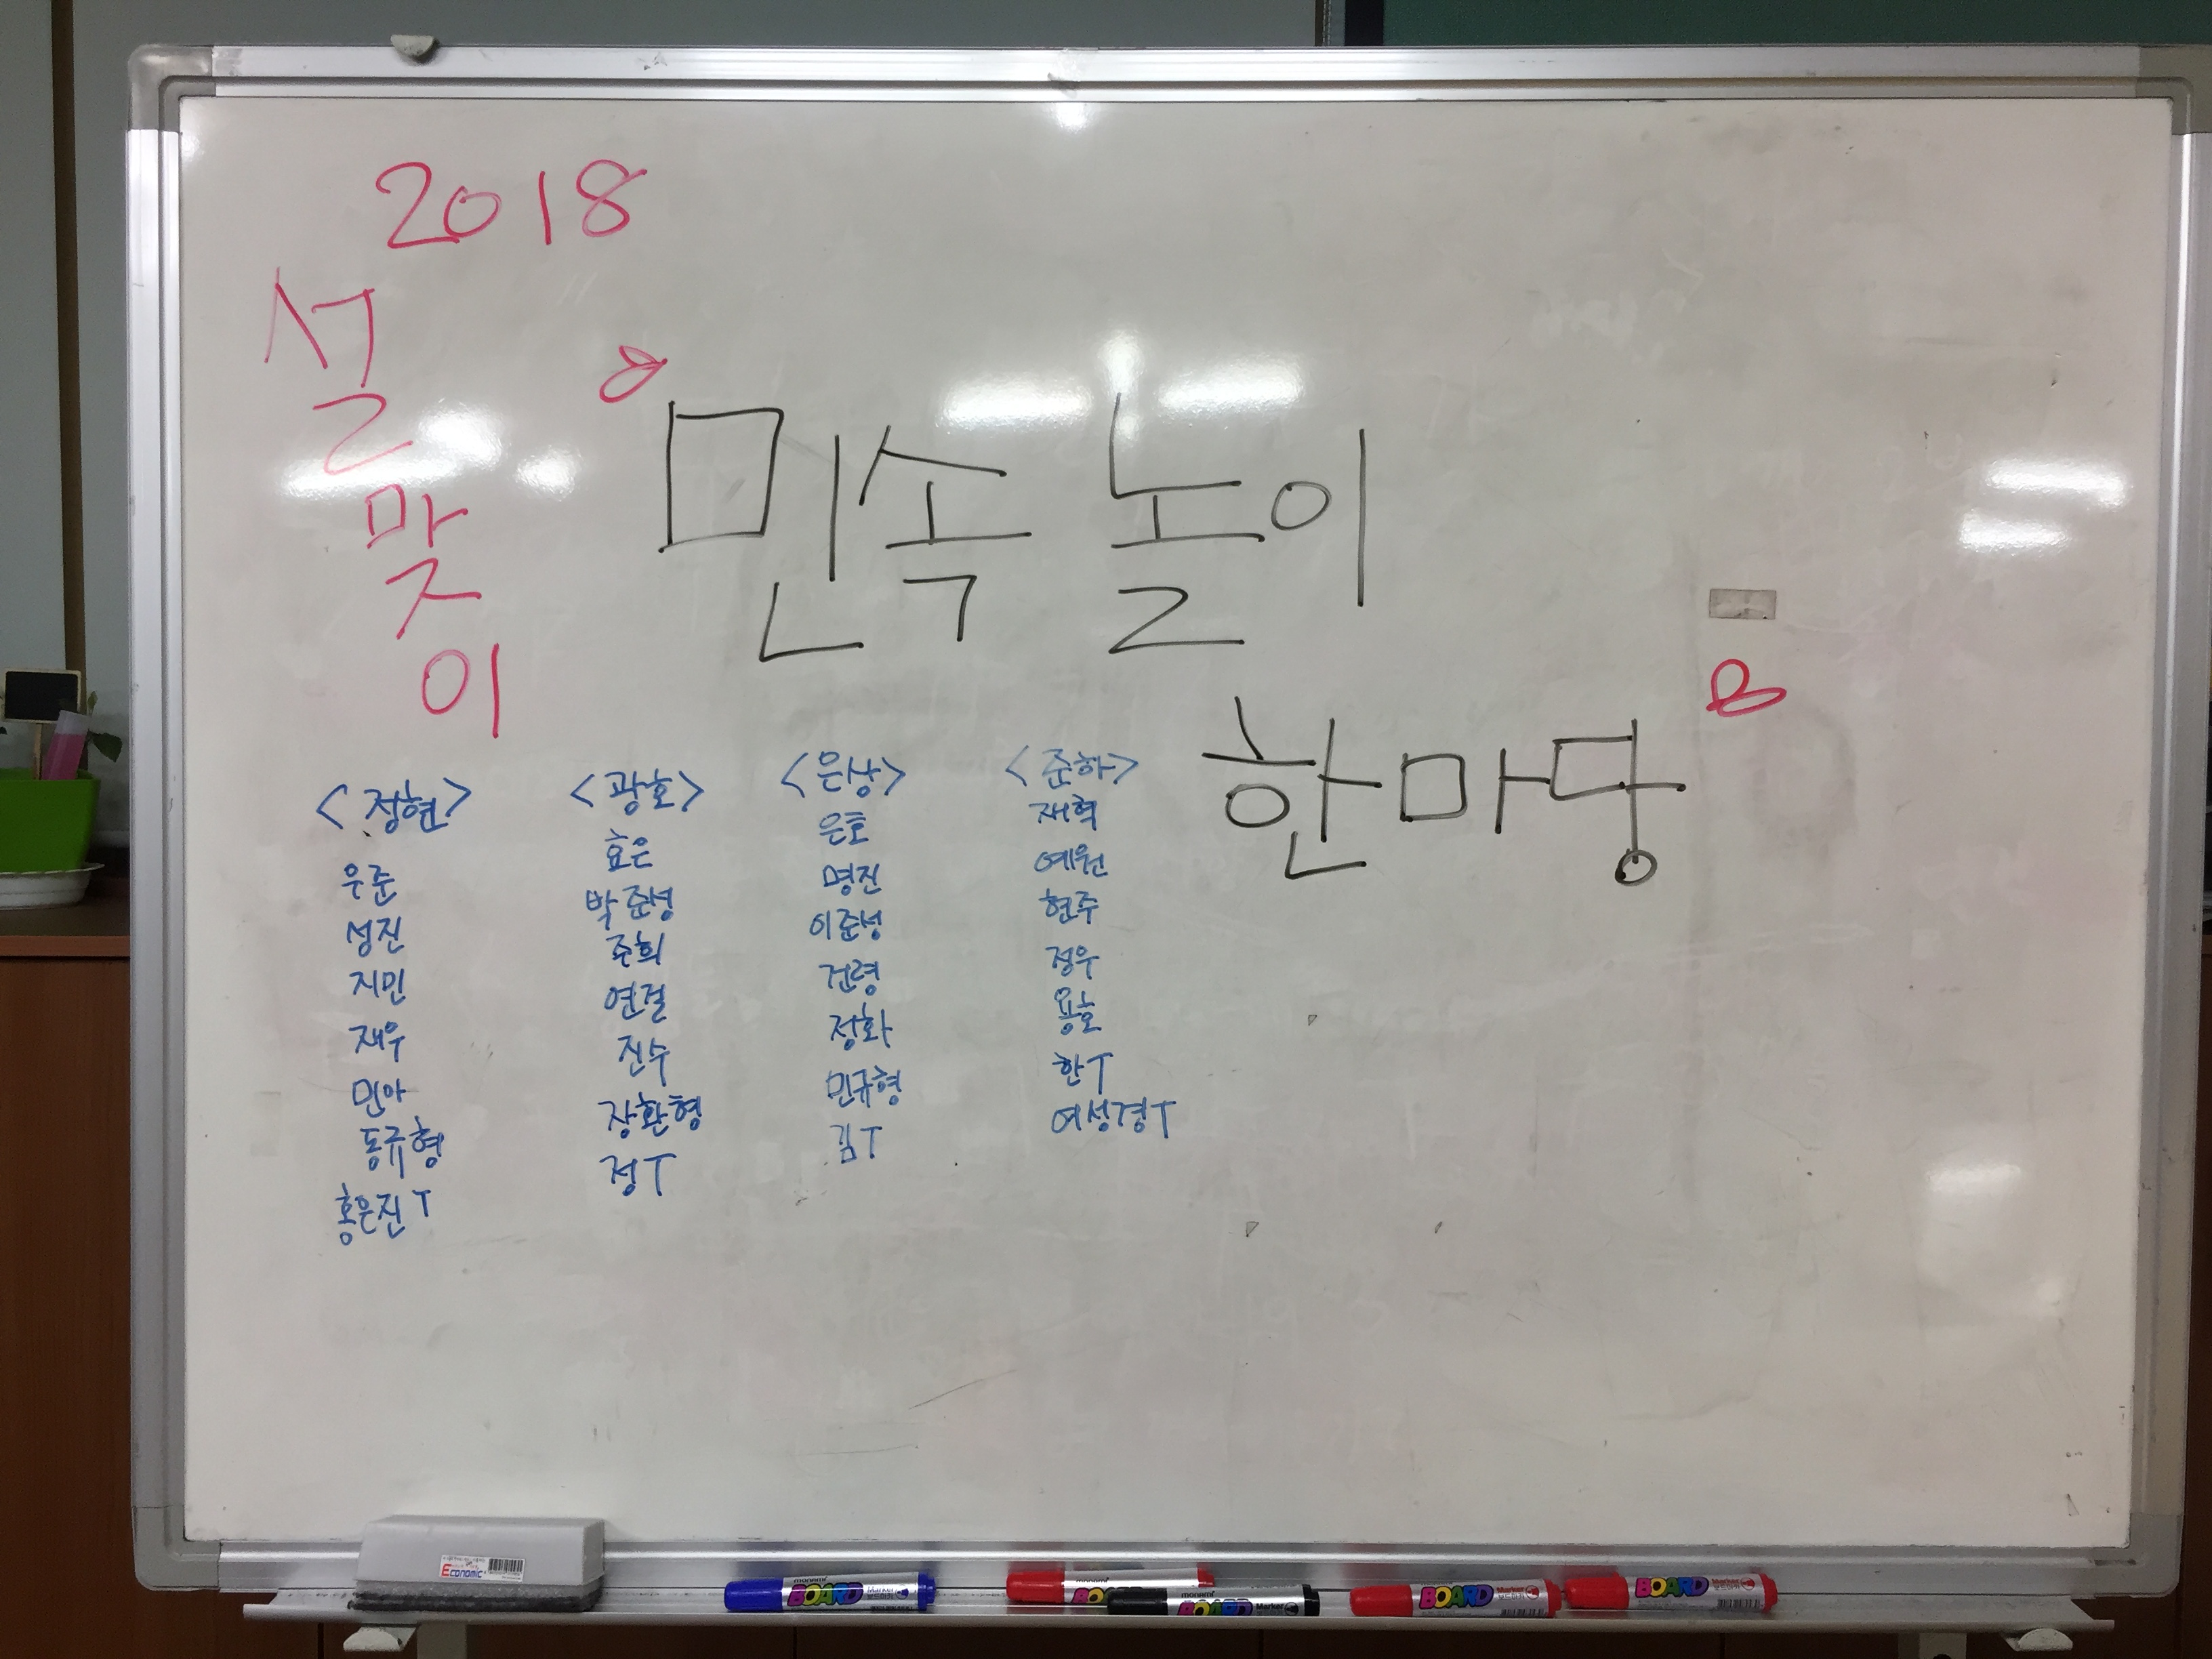 2018
설맞이
민속놀이
한마당
<정현>
우준
성진
지민
재우
민아
동규형
홍은진T
<광호>
효은
박준성
준희
연결
진수
장환형
정T
<은상>
은호
명진
이준성
건령
정화
민규형
김T
<준하>
재혁
예원
현주
정우
용호
한T
여성경T
Economic
monami
BOARD
Marker
monami
BOARD
Marker
BOARD
Marker
보드마카
BOARD
Marker
보드마카